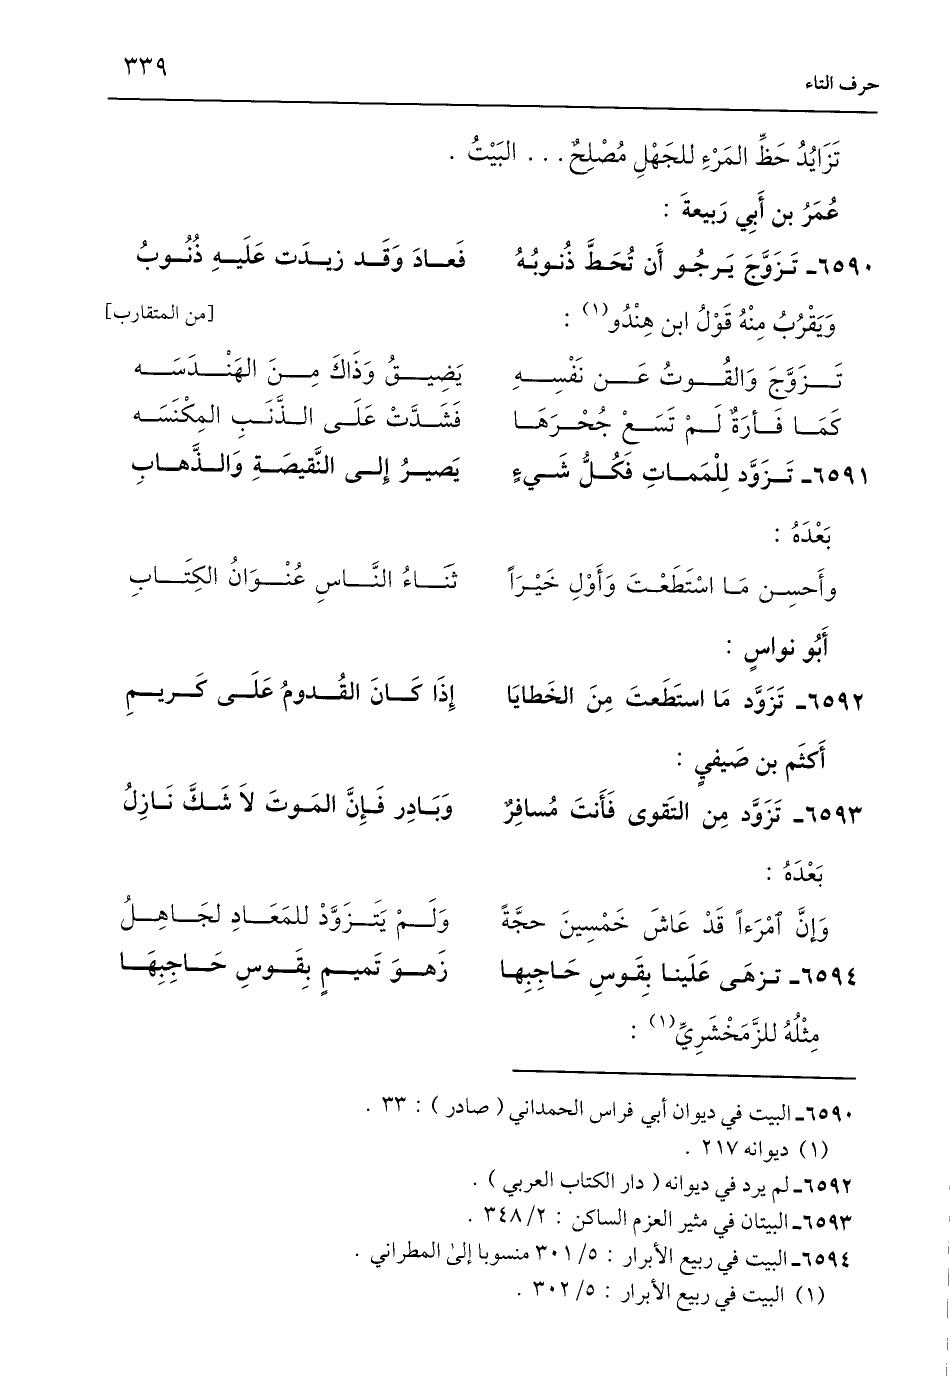 حرف التاء ٣٣٩
تَزَايُدُ حَظِّ المَرْءِ للجَهْلِ مُصْلِحٌ . . . البَيْتُ .
عُمَرُ بن أَبِي رَبِيعةَ :
٦٥٩٠ـ تَزَوَّجَ يَرجُو أَن تُحَطَّ ذُنُوبُهُ فَعادَ وَقَد زِيدَت عَلَيهِ ذُنُوبُ
وَيَقْرُبُ مِنْهُ قَوْلُ ابن هِنْدُو(١) : [من المتقارب]
تَزَوَّجَ وَالقُوتُ عَن نَفْسِهِ يَضِيقُ وَذَاكَ مِنَ الهَنْدَسَه
كَمَا فَأرَةٌ لَمْ تَسَعْ جُحْرَهَا فَشَدَّتْ عَلَى الذَّنَبِ المِكْنَسَه
٦٥٩١ـ تَزَوَّد لِلْمَمـاتِ فَكُلُّ شَيءٍ يَصيرُ إِلى النَّقيصَةِ وَالذَّهابِ
بَعْدَهُ :
وأَحسِن مَا اسْتَطَعْتَ وَأَوْلِ خَيْراً ثَنَاءُ النَّاسِ عُنْوَانُ الكِتَابِ
أَبُو نواسٍ :
٦٥٩٢ـ تَزَوَّد مَا استَطَعتَ مِنَ الخَطايَا إِذَا كَانَ القُدومُ عَلَى كَريمِ
أَكثَم بن صَيفيٍ :
٦٥٩٣ـ تَزَوَّد مِن التَقوى فَأَنتَ مُسافِرٌ وَبَادِر فَإِنَّ المَوتَ لاَ شَكَّ نَازِلُ
بَعْدَهُ :
وَإِنَّ ٱمْرَءاً قَدْ عَاشَ خَمْسِينَ حجَّةً وَلَمْ يَتَزَوَّدْ للمَعَادِ لجَاهِلُ
٦٥٩٤ـ تزهَى عَلَينا بِقَوسِ حَاجِبِها زَهوَ تَميمٍ بِقَوسِ حَاجِبِهَا
مِثْلُهُ للزَّمَخْشَرِيِّ(١) :
٦٥٩٠ـ البيت في ديوان أبي فراس الحمداني ( صادر ) : ٣٣ .
(١) ديوانه ٢١٧ .
٦٥٩٢ـ لم يرد في ديوانه ( دار الكتاب العربي ) .
٦٥٩٣ـ البيتان في مثير العزم الساكن : ٢/ ٣٤٨ .
٦٥٩٤ـ البيت في ربيع الأبرار : ٥/ ٣٠١ منسوبا إلىٰ المطراني .
(١) البيت في ربيع الأبرار : ٥/ ٣٠٢ .